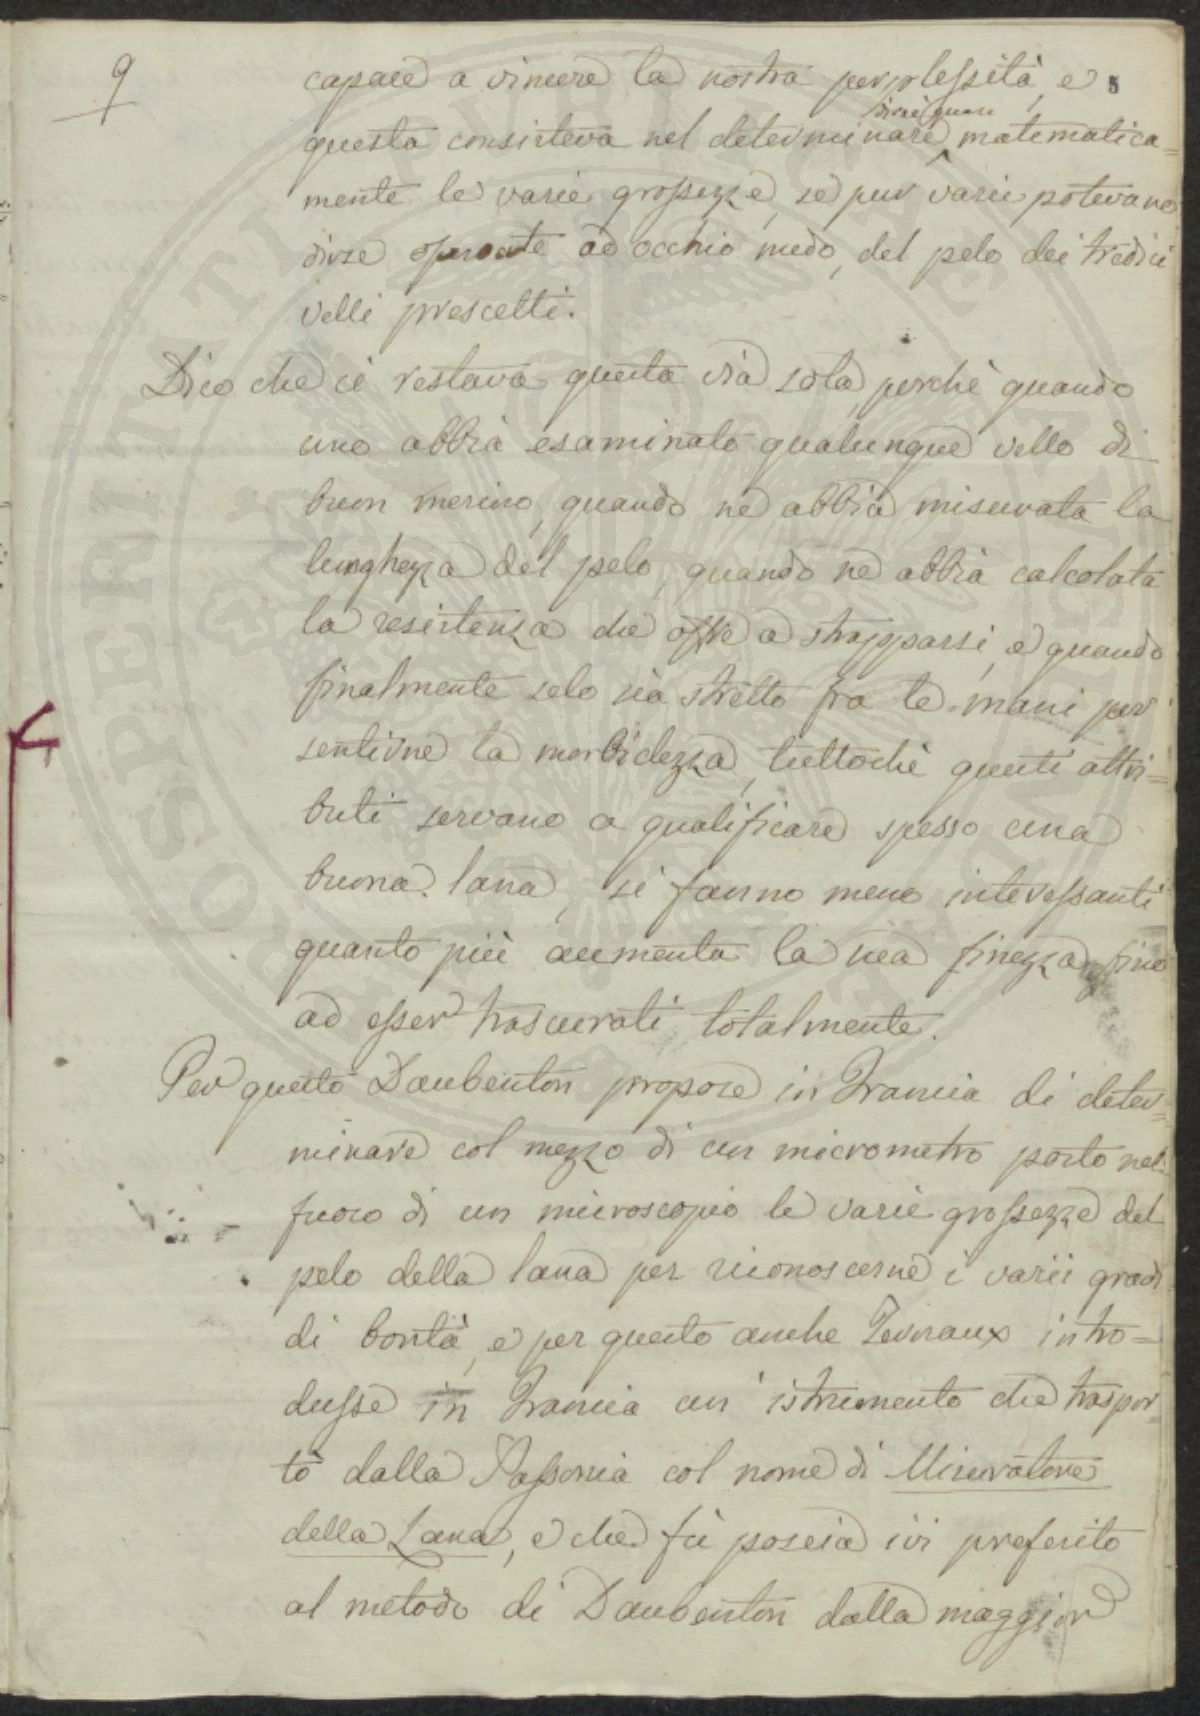 9
5
capace a vincere la nostra perplessità, e
direi quasi
questa consisteva nel determinare matematica=
mente le varie grossezze, se pur varie potevano
dirse ad occhio nudo, del pelo dei tredici
velli prescelti.
Dico che ci restava questa via sola, perchè quando
uno abbia esaminato qualunque vello di
buon merino, quando ne abbia misurata la
lunghezza del pelo, quando ne abbia calcolata
la resistenza che offre a strapparsi, e quando
finalmente selo sia stretto fra le mani per
sentirne la morbidezza, tuttochè questi attri=
buti servano a qualificare spesso una
buona lana, si fanno meno interessanti
quanto più aumenta la sua finezza, fino
ad esser trascurati totalmente.
Per questo Daubenton propose in Francia di deter=
minare col mezzo di un micrometro posto nel
fuoco di un microscopio le varie grossezze del
pelo della lana per riconoscerne i varii gradi
di bontà, e per questo anche Ternaux intro=
dusse in Francia un' istrumento che traspor=
tò dalla Sassonia col nome di Misuratore
della Lana, e che fù poscia ivi preferito
al metodo di Daubenton dalla maggior
PROSPERITATI PUBLICAE AUGENDAE